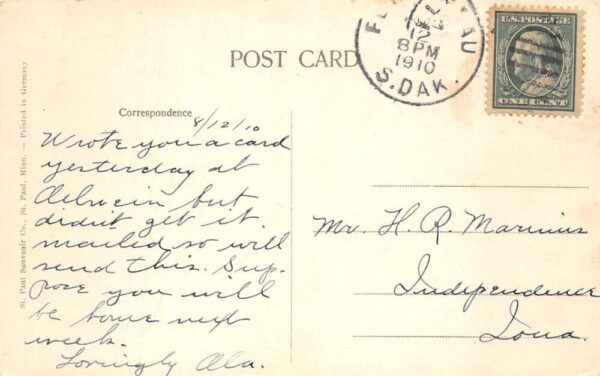 FL EAU
12
8 PM
1910
S. DAK.
U.S. POSTAGE
ONE CENT
POST CARD
St. Paul Souvenir Co., St. Paul, Minn. — Printed in Germany
Correspondence
8/12/10
Wrote you a card
yesterday at
Oelwein but
didn't get it
mailed so will
send this. Sup-
pose you will
be home next
week.
Lovingly Ala.
Mr H. R.
Independence
Iowa.